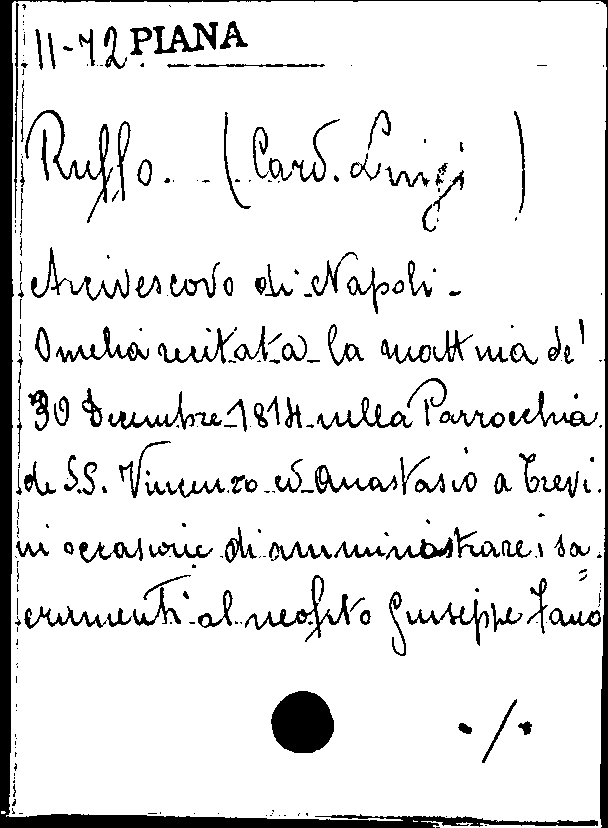 11-72 PIANA
Ruffo. (Card. Luigi)
Arcivescovo di Napoli -
Omelia recitata la mattina de'
30 Decembre 1814 nella Parrocchia
de SS. Vincenzo ed Anastasio a Trevi
in occasione di amministrare i sa=
cramenti al neofito Giuseppe Fano
./.